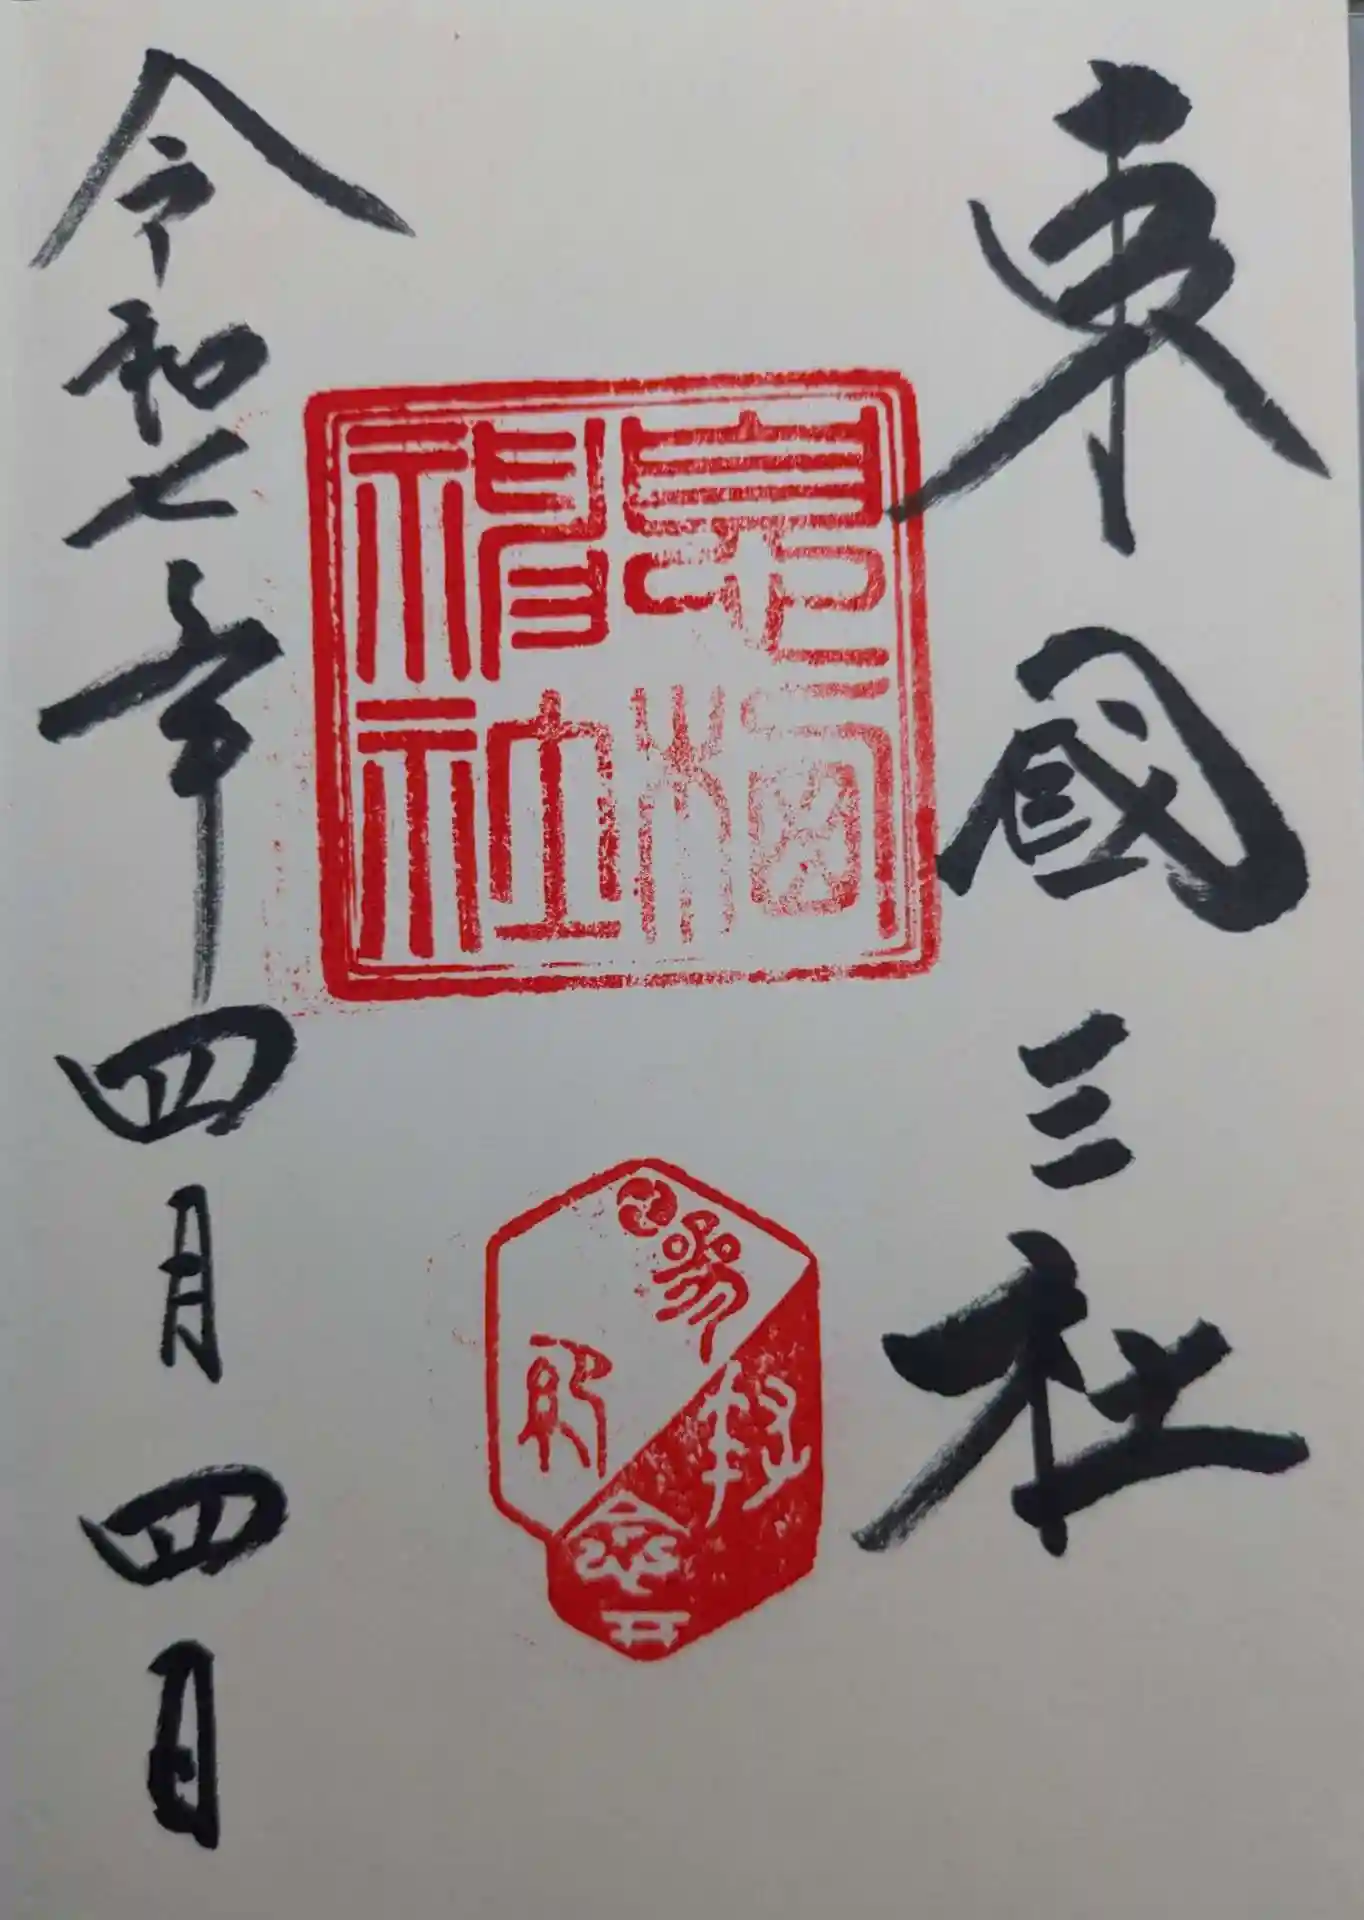 東國三社
息栖
神社
令和七年四月四日